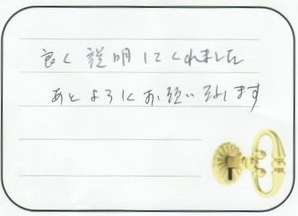 良く説明してくれました
あとよろしくお願い致します